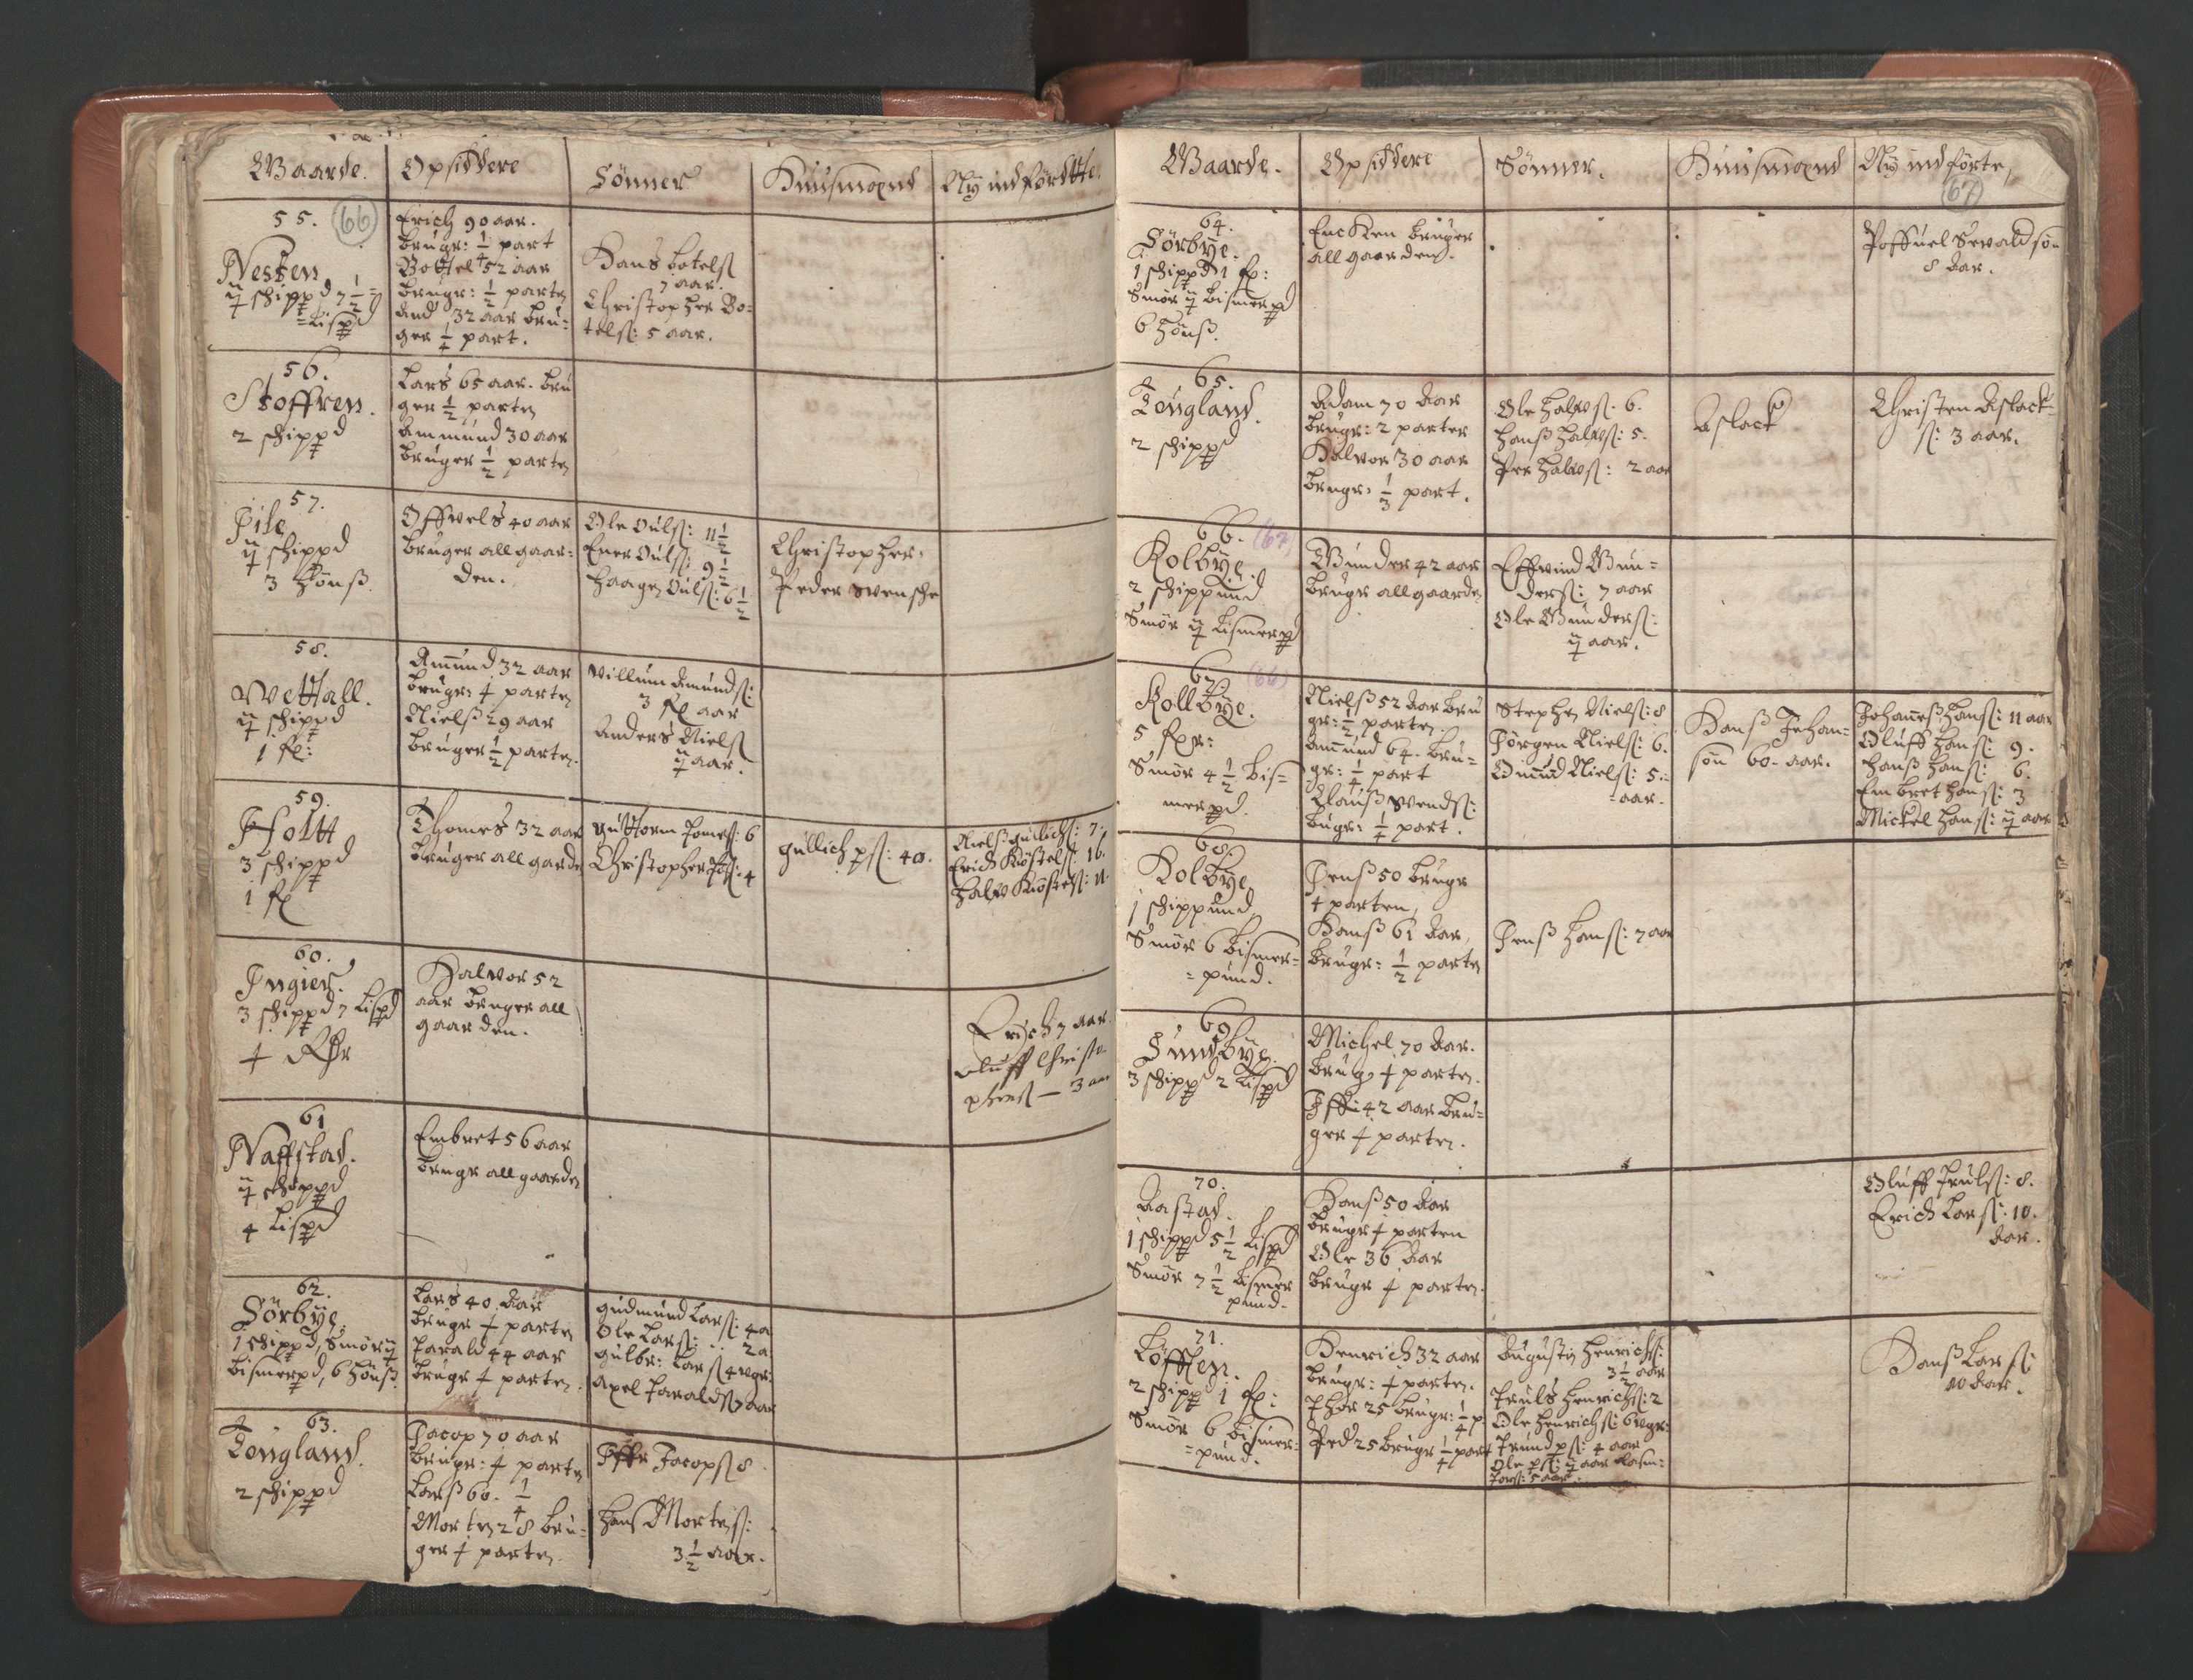 Gaarde. Opsiddere Sønner Huusmænd Ny indførtte.
66
55.
Nesten
½ schippd 7½
Lispd
Erich 90 aar.
bruger: ¼ part
Bottel 52 aar
bruger: ½ parten
And 32 aar bru-
ger ¼ part.
Hans botelß
7 aar.
Christopher Bo-
telß: 5 aar.
56.
Stoffren.
2 schippd
Lars 65 aar. bru
ger ½ parten
Ammund 30 aar
bruger ½ parten
57.
½ schippd
3 hønß.
40 aar
bruger all gaar-
den.
Ole Oulß: 11½
Ener Oulß: 9½
Haagen Oulß: 6½
Christopher.
Peder Svensche
58.
Wettall.
½ schippd
1 fl:
Amund 32 aar
brugr: ½ parten
Nielß 29 aar
bruger ½ parten.
Willum Amundß:
3 fl aar
Anders Nielß
½ aar.
59.
Holtt
3 schippd
1 fl
Thomes 32 aar
bruger all garden
Guttorm Tomeß: 6
Christopher Toß: 4
Gullich pß: 40.
Nielß Gulichß: 7.
Erich Kiøstelß: 16.
Halv Kiøstelß: 11.
60.
Ingier.
3 schippd 7 Lispd
½ Rdr
Halvor 52
aar bruger all
gaarden.
Erich 7 aar
Oluff Christo
phersß — 3 aar
61
Naffstad.
½ schippd
4 Lispd
Embret 56 aar
brugr all gaarden
62.
Sørbye.
1 schippd, Smør ½
bismerpd, 6 hønß.
Lars 40 Aar
brugr ½ parten
Tarald 44 aar
brugr ½ parten.
Gudmund Larß: 4 a
Ole Larß: .. 2 a
Gulbr: Larß 4 ugr:
Axel Taraldß 7 aar
63.
Tougland.
2 schippd
Jacop 70 aar
bruger: ½ parten
Larß 60. ¼
Morten 28 bru-
ger ½ parten.
Jacopß 8
Hanß Mortenß:
3½ aar.
Gaarde. Opsiddere Sønner. Huusmænd Ny indførte,
67
64.
Sørbye.
1 schippd 1 fl:
Smør ½ bismerpd
6 hønß.
Encken bruger
all gaarden.
Poffuel Sevaldsø-
8 Aar.
65.
Tougland.
2 schippd
Adam 70 Aar
brugr: 2 parter
Halvor 30 aar
brugr: ⅓ part.
Ole Halvoß: 6.
Hanß Halvoß: 5.
Per Halvoß: 2 aar
Aslack
Christen Aslack-
ß: 3 aar.
66. (67)
Kolbye.
2 schippund
Smør ½ bismerpd
Gunder 42 aar
brugr all gaarden
Effvind Gun-
derß: 7 aar
Ole Gunderß:
½ aar.
67. (66)
Kollbye.
5 fl:
Smør 4½ bis-
merpd.
Nielß 52 Aar bru
gr: ½ parten
Amund 64. bru-
gr: ¼ part
Clauß Svendß:
bugr: ¼ part.
Stephen Nielß: 8
Jørgen Nielß: 6.
Nielß: 5.
aar.
Hans Johan-
søn 60. aar.
Johanneß Hanß: 11 aar
Oluff Hanß: 9.
Hanß Hanß: 6.
Embret Hanß: 3
Mickel Hanß: ½ aar
68.
Kolbye
1 schippund
Smør 6 bismer-
pund.
Jenß 50 brugr
½ parten,
Hanß 61 Aar,
brugr: ½ parten
Jenß Hanß: 7 aar
69.
Sundbye.
3 schippd 2 Lispd
Michel 70 Aar.
brug: ½ parten.
42 aar bru-
ger ½ parten.
70.
Aastad.
1 schippd 5½ Lispd
Smør 7½ bismer
pund.
Hanß 50 Aar
brugr ½ parten
Ole 36 Aar
brugr ½ parten.
Oluff Trulß: 8.
Erich Larß: 10.
Aar.
71.
Løfften.
2 schippd 1 fl:
Smør 6 bismer-
pund.
Henrich 32 aar
brugr: ½ parten.
Thor 25 brugr: ¼ p.
Ped 25 brugr ¼ part
Augustin Henrichß:
3½ aar
Truls Henrichß: 2
Ole Henrichß: 6 ugr:
Trund pß: 4 aar
Ole pß: ½ aar
Torß: 5 aar.
Hanß Larß:
10 Aar.